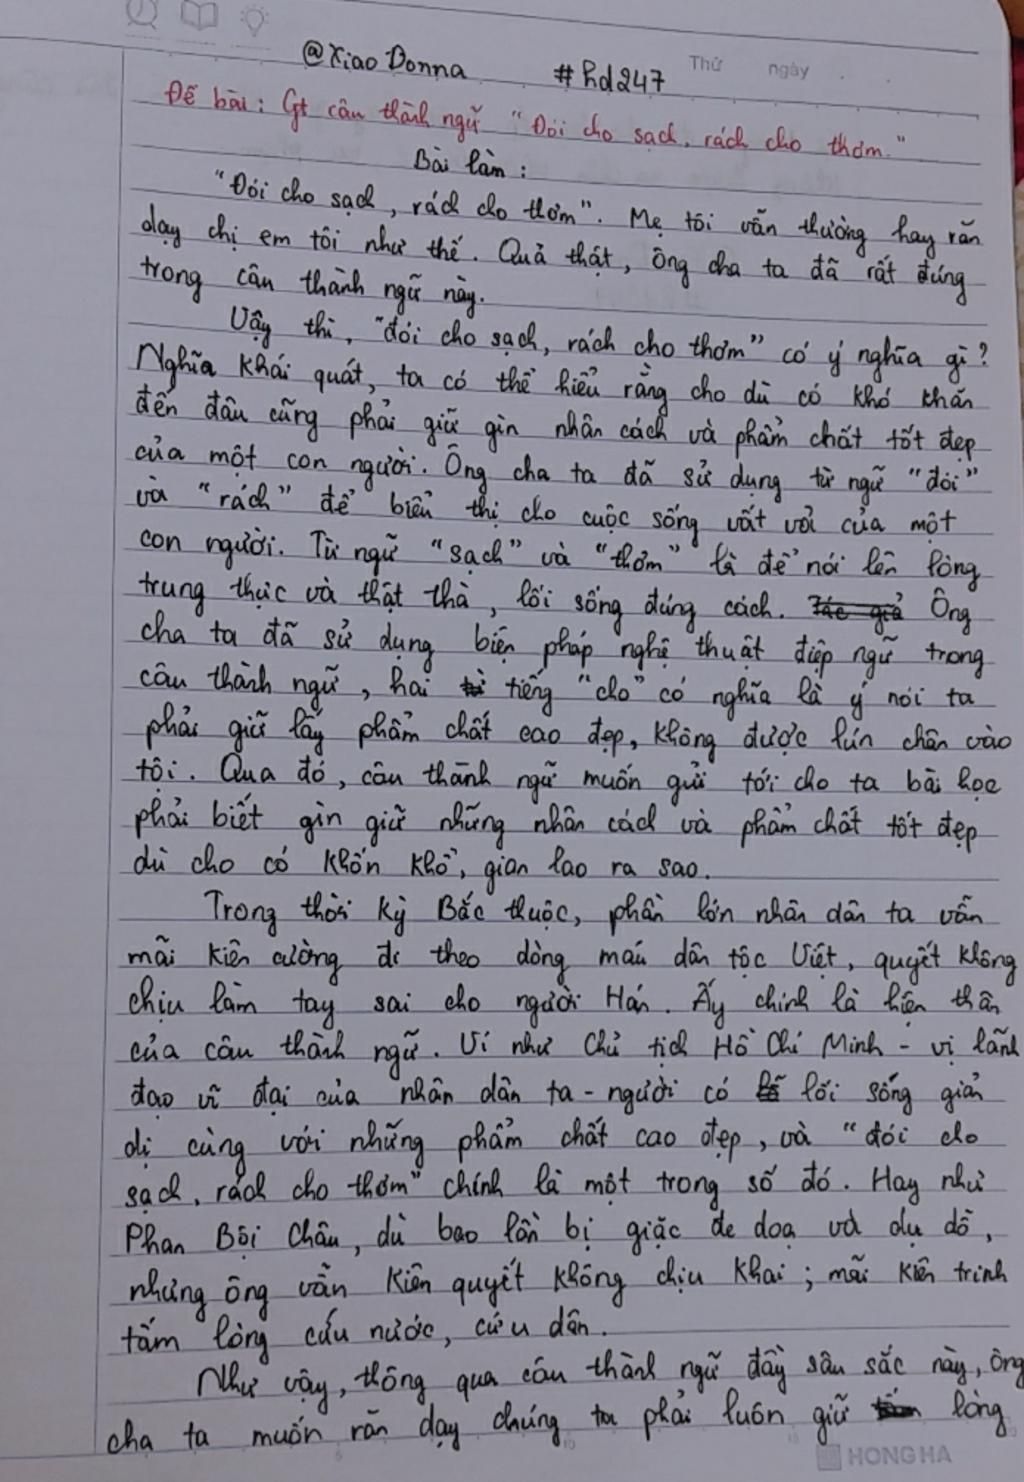 @Xiao Donna #hd247 Thứ ngày
Đề bài: Gt câu thành ngữ "Đói cho sạch, rách cho thơm."
Bài làm:
"Đói cho sạch, rách cho thơm". Mẹ tôi vẫn thường hay răn
dạy chị em tôi như thế. Quả thật, ông cha ta đã rất đúng
trong câu thành ngữ này.
Vậy thì, "đói cho sạch, rách cho thơm" có ý nghĩa gì?
Nghĩa khái quát, ta có thể hiểu rằng cho dù có khó khăn
đến đâu cũng phải giữ gìn nhân cách và phẩm chất tốt đẹp
của một con người. Ông cha ta đã sử dụng từ ngữ "đói"
và "rách" để biểu thị cho cuộc sống vất vả của một
con người. Từ ngữ "sạch" và "thơm" là để nói lên lòng
trung thực và thật thà, lối sống đúng cách. Tác giả Ông
cha ta đã sử dụng biện pháp nghệ thuật điệp ngữ trong
câu thành ngữ, hai từ tiếng "cho" có nghĩa là ý nói ta
phải giữ lấy phẩm chất cao đẹp, không được lún chân vào
tội. Qua đó, câu thành ngữ muốn gửi tới cho ta bài học
phải biết gìn giữ những nhân cách và phẩm chất tốt đẹp
dù cho có khốn khổ, gian lao ra sao.
Trong thời kỳ Bắc thuộc, phần lớn nhân dân ta vẫn
mãi kiên cường đi theo dòng máu dân tộc Việt, quyết không
chịu làm tay sai cho người Hán. Ấy chính là hiện thân
của câu thành ngữ. Ví như Chủ tịch Hồ Chí Minh - vị lãnh
đạo vĩ đại của nhân dân ta - người có lối sống giản
dị cùng với những phẩm chất cao đẹp, và "đói cho
sạch, rách cho thơm" chính là một trong số đó. Hay như
Phan Bội Châu, dù bao lần bị giặc đe doạ và dụ dỗ,
nhưng ông vẫn kiên quyết không chịu khai; mãi kiên trinh
tấm lòng cứu nước, cứu dân.
Như vậy, thông qua câu thành ngữ đầy sâu sắc này, ông
cha ta muốn răn dạy chúng ta phải luôn giữ lòng
HONG HA